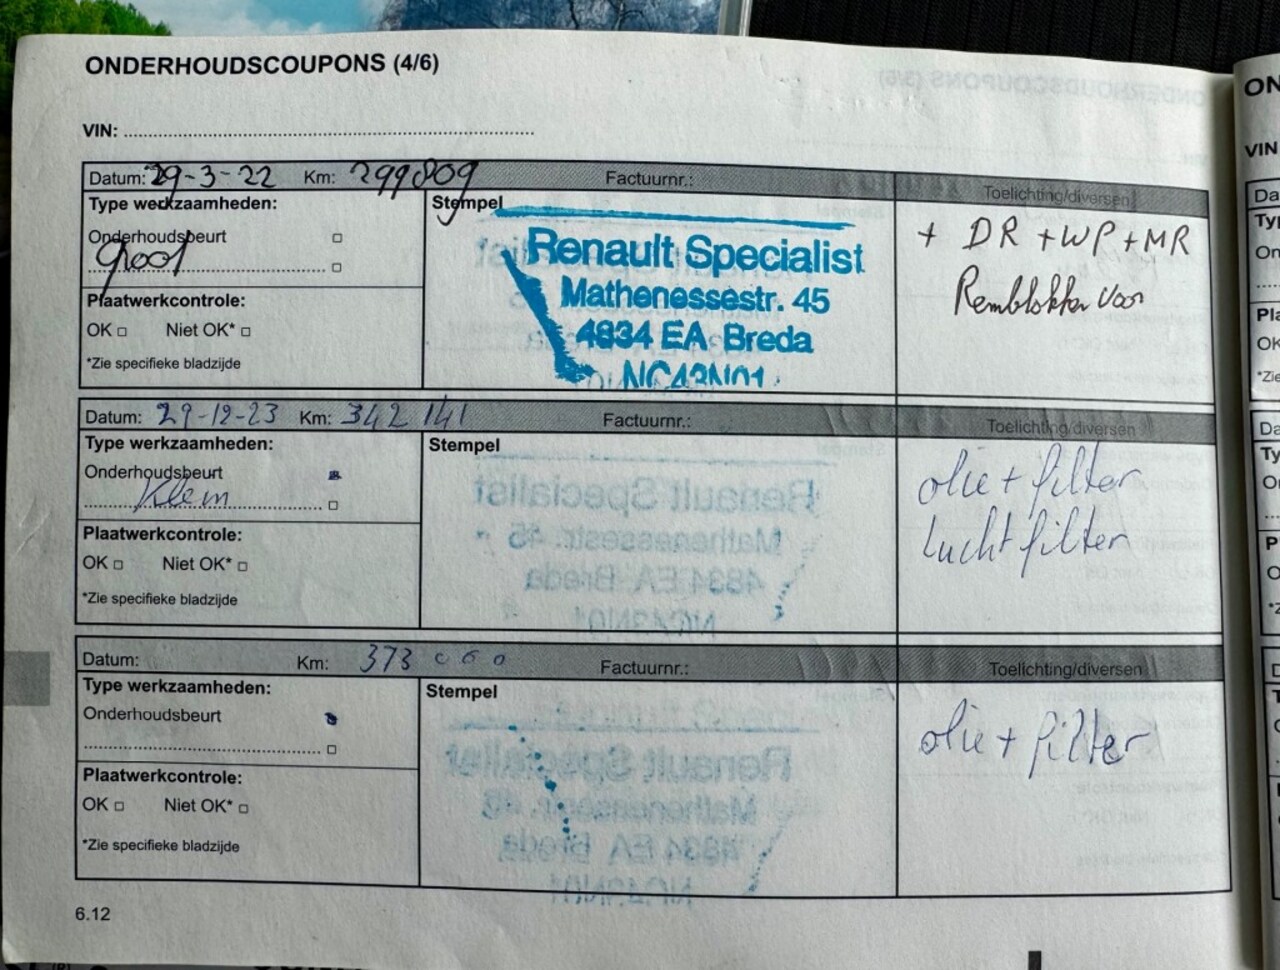 ONDERHOUDSCOUPONS (4/6)
VIN:
Datum: 29-3-22 Km: 299809 Factuurnr.:
Toelichting/diversen
Type werkzaamheden:
Stempel
Onderhoudsbeurt
groot
Plaatwerkcontrole:
OK Niet OK*
*Zie specifieke bladzijde
Renault Specialist
Mathenessestr. 45
4834 EA Breda
NC43N01
+ DR + WP + MR
Remblokken Voor
Datum: 29-12-23 Km: 342 141 Factuurnr.:
Toelichting/diversen
Type werkzaamheden:
Stempel
Onderhoudsbeurt
Klein
Plaatwerkcontrole:
OK Niet OK*
*Zie specifieke bladzijde
olie + filter
lucht filter
Datum: Km: 373 000 Factuurnr.:
Toelichting/diversen
Type werkzaamheden:
Stempel
Onderhoudsbeurt
Plaatwerkcontrole:
OK Niet OK*
*Zie specifieke bladzijde
olie + filter
6.12
ON
VIN